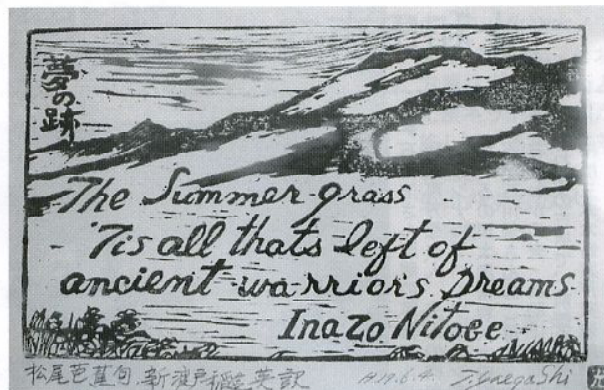 夢の跡
The Summer grass
'Tis all thats left of
ancient warriors Dreams
Inazo Nitobe
松尾芭蕉句 新渡戸稲造英訳 H19.6.4